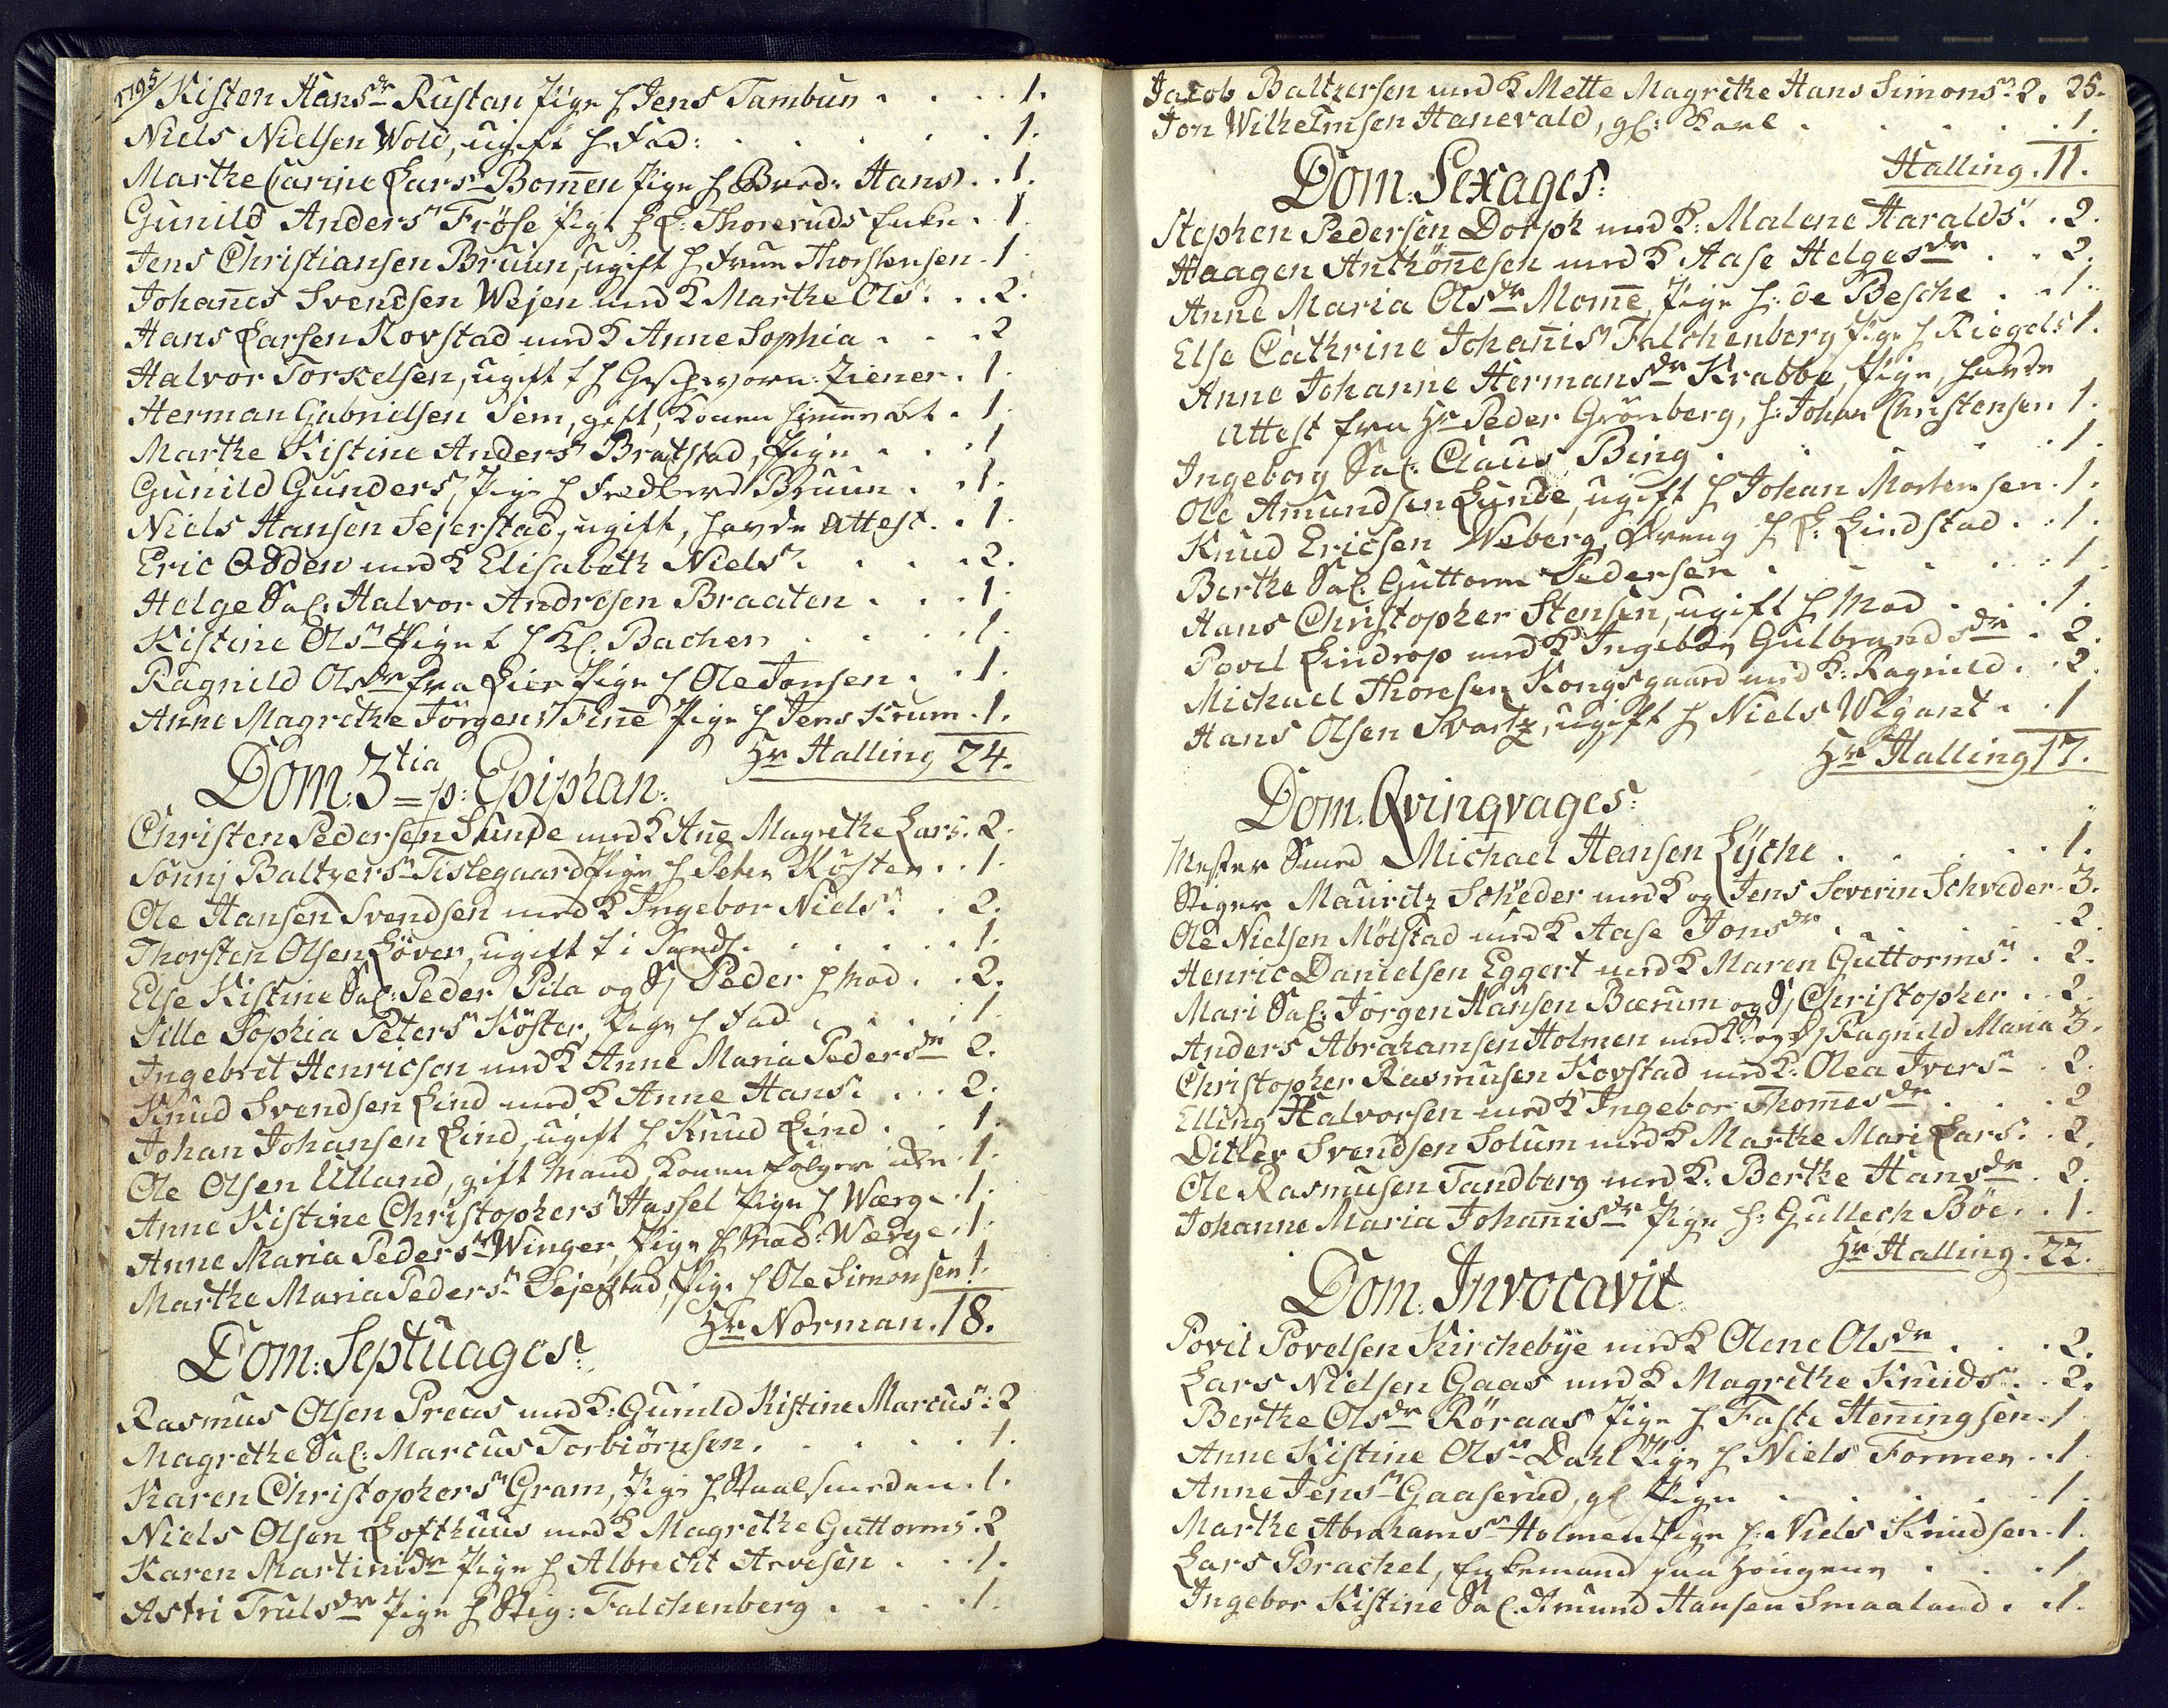 1795/ Kisten Hansdr Rustan Pige h Jens Tambur . . . . 1.
Niels Nielsen Wold, ugift h Fad: . . . . 1.
Marthe Carine Larsr Bom̄en Pige h Brod. Hans . . 1.
Gunild Andersr Fröse Pige h L: Thoreruds Enke . 1
Jens Christiansen Bruun, ugift h Thorstensen . 1
Johan̄es Svendsen Wejen med K Marthe Olsr . . 2.
Hans Larsen Kovstad med K Anne Sophia . . . 2
Halvor Torkelsen, ugift f h Geschworn: Ziener . 1.
Herman Gubrielsen Sem, gift, Konen . 1
Marthe Kistine Andersr Bratstad, Pige . . . 1
Gunild Gundersr Pige h Bruun . . 1.
Niels Hansen Sejerstad, ugift, havde Attest . . 1
Eric Odden med K Elisabeth Nielsr . . . . 2.
Helge Sal: Halvor Andresen Braaten . . . 1.
Kistine Olsr Pige f h Kl. Bacher . . . . 1.
Ragnild Olsdr fra Lier Pige h Ole Jonsen . . 1.
Anne Magrethe Jörgensr Fine Pige h Jens Krum . 1.
Hr Halling 24.
Dom: 3tia p: Epiphan:
Christen Pedersen Sunde med K An̄e Magrethe Larsr . 2.
Sönnj Baltzersr Tistegaard Pige h Peter Köster . . 1
Ole Hansen Svendsen med K Ingebor Nielsr . . 2.
Thorsten Olsen Löver, ugift f i Sands . . . . 1.
Else Kistine Sal: Peder Pila og Sj Peder h Mod . . 2.
Sille Sophia Petersr Köster, Pige h Fad . . . . 1
Ingebret Henricsen med K Anne Maria Pedersdr 2.
Knud Svendsen Lind med K Anne Hansr . . . 2.
Johan Johansen Lind, ugift h Knud Lind . . . 1.
Ole Olsen Ulland, gift Mand, Konen fölger . 1.
Anne Kistine Christophersr Hassel Pige h Wærge . 1.
Anne Maria Pedersr Winger, Pige h Mad: Wærge . 1.
Marthe Maria Pedersr Sejerstad, Pige h Ole Simonsen 1.
Hr Norman . 18.
Dom: Septuages:
Rasmus Olsen Preas med K: Gunild Kistine Marcusr : 2
Magrethe Sal: Marcus Torbiörnsen . . . . . 1.
Karen Christophersr Gram, Pige h Staalsmeden . 1.
Niels Olsen Lofthuus med K Magrethe Guttormsr . 2
Karen Martinisdr Pige h Albrecht Arvesen . . . 1.
Astri Trulsdr Pige h Stig: Falchenberg . . . . 1.
Jacob Baltzersen med K Mette Magrethe Hans Simonsr 2. 25.
Jon Wilhelmsen Hanevald, gl: Karl . . . . 1.
Halling . 11.
Dom: Sexages:
Stephen Pedersen Dorph med K: Malene Haraldsr . . 2.
Haagen Anthönnesen med K Aase Helgesdr . . 2.
Anne Maria Olsdr Mom̄e, Pige h: de Besche . . . 1.
Else Cathrine Johan̄isr Falchenberg Pige h Riegels 1.
Anne Johanne Hermansdr Krabbe, Pige, havde
Attest fra Hr Peder Grönberg, h: Johan Christensen 1.
Ingeborg Sal: Claus Bing . . . . . 1.
Ole Amundsen Lunde, ugift h Johan Mortensen . 1.
Knud Ericsen Weberg, Dreng h L: Lindstad . . 1.
Berthe Sal: Guttorm Pedersen . . . . . 1.
Hans Christopher Stensen, ugift h Mod . . . 1.
Povel Lindrop med K Ingebor Gulbrandsdr . 2.
Michael Thoresen Kongsgaard med K: Ragnild . . 2.
Hans Olsen Svartz, ugift h Niels Wigant . . 1
Hr Halling 17.
Dom: Qvinqvages:
Mester Smed Michael Hansen Lyche . . . . . 1.
Stiger Mauritz Schöder med K og Jens Severin Schröder . 3.
Ole Nielsen Mölstad med K Aase Jonsdr . . . . 2.
Henric Danielsen Eggert med K Maren Guttormsr . 2.
Mari Sal: Jörgen Hansen Bærum og Sj Christopher . . 2.
Anders Abrahamsen Holmen med K: og Dj Ragnild Maria 3.
Christopher Rasmusen Kovstad med K: Olea Iversr . 2.
Elling Halvorsen med K Ingebor Thom̄esdr . . . 2
Ditlev Svendsen Solum med K Marthe Mari Larsr . . 2.
Ole Rasmusen Tandberg med K: Berthe Hansdr . . 2.
Johanne Maria Johan̄isdr Pige h: Gullech Böe . . 1.
Hr Halling . 22.
Dom: Invocavit
Povel Povelsen Kirchebye med K Olene Olsdr . . . 2.
Lars Nielsen Gaas med K Magrethe Knudsr . . 2.
Berthe Olsdr Röraas Pige h Faste Hen̄ingsen . 1
Anne Kistine Olsr Dahl Pige h Niels Former . . 1
Anne Jensr Gaaserud, gl Pige . . . . . 1.
Marthe Abrahamsr Holmen Pige h: Niels Knudsen . 1.
Lars Brachel, Enkemand paa Hougene . . . 1.
Ingebor Kistine Sal. Amund Hansen Smaaland . . 1.